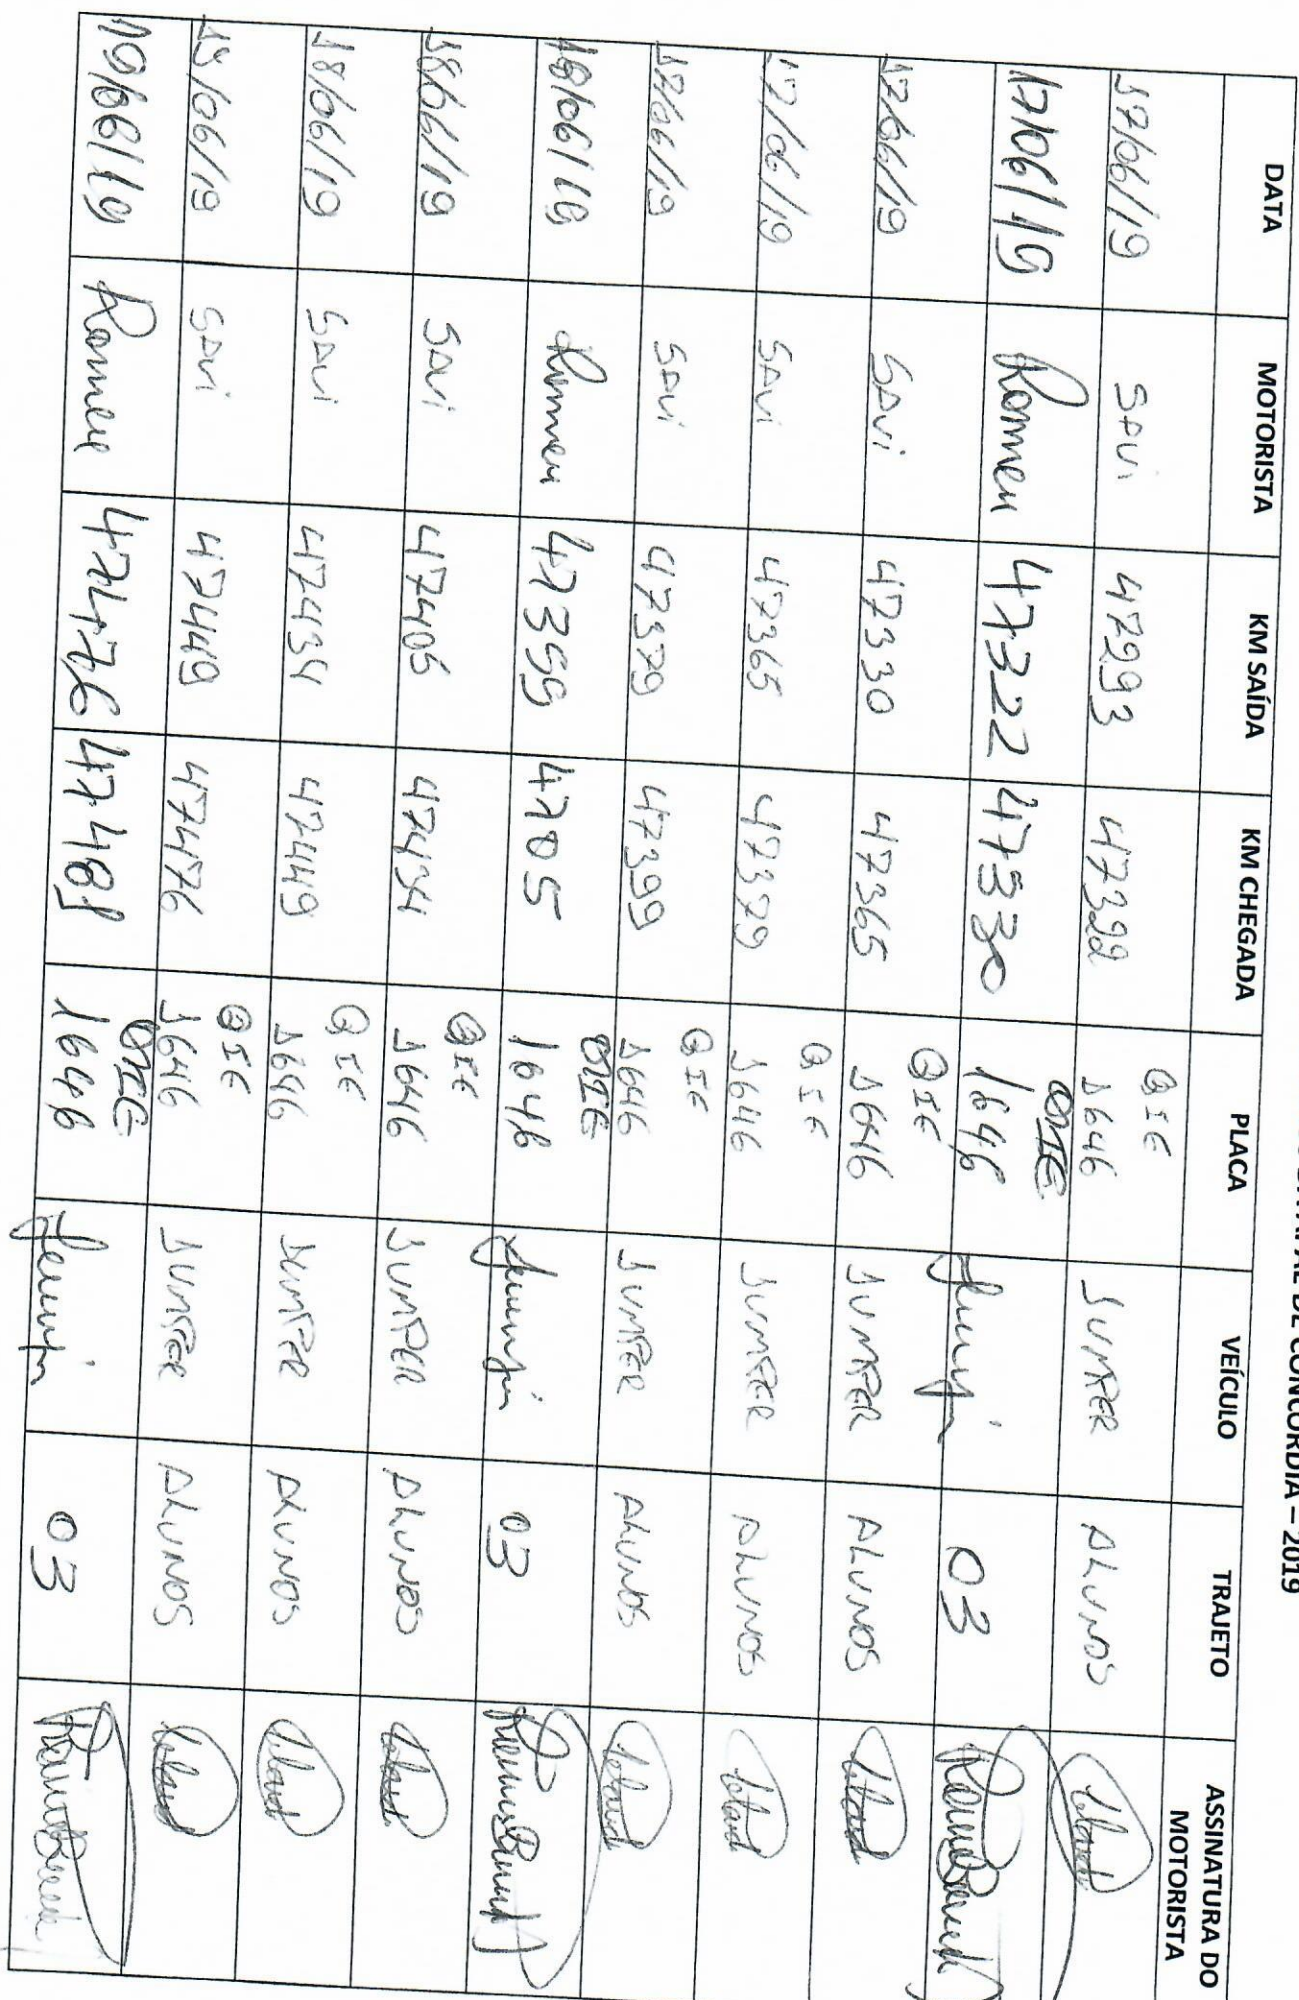 DE CONCÓRDIA – 2019
DATA MOTORISTA KM SAÍDA KM CHEGADA PLACA VEÍCULO TRAJETO ASSINATURA DO MOTORISTA
17/06/19 SAVI 47293 47322 QIE 1646 JUMPER ALUNOS
17/06/19 Romeu 47322 47330 QIE 1646 03
17/06/19 SAVI 47330 47365 QIE 1646 JUMPER ALUNOS
17/06/19 SAVI 47365 47379 QIE 1646 JUMPER ALUNOS
17/06/19 SAVI 47379 47399 QIE 1646 JUMPER ALUNOS
18/06/19 Romeu 47399 4705 QIE 1646 03
18/06/19 SAVI 47405 47434 QIE 1646 JUMPER ALUNOS
18/06/19 SAVI 47434 47449 QIE 1646 JUMPER ALUNOS
19/06/19 SAVI 47449 47476 QIE 1646 JUMPER ALUNOS
19/06/19 Romeu 47476 47481 QIE 1646 03